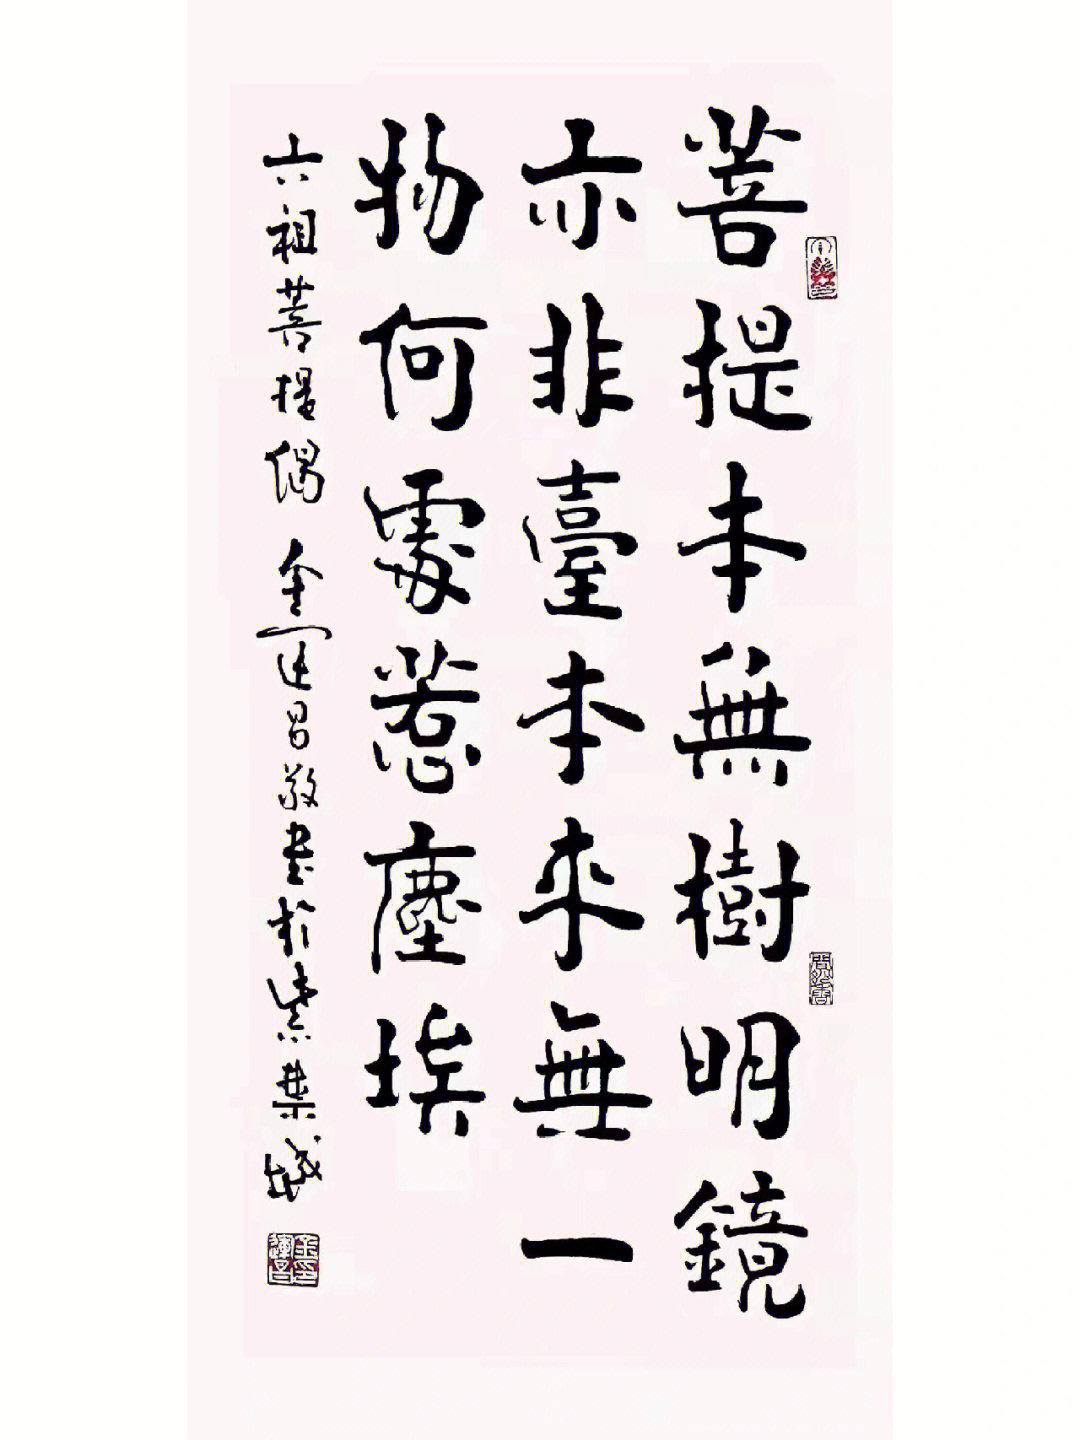 菩提本無樹明鏡
亦非臺本来無一
物何處惹塵埃
六祖菩提偈 金运昌敬書於紫禁城